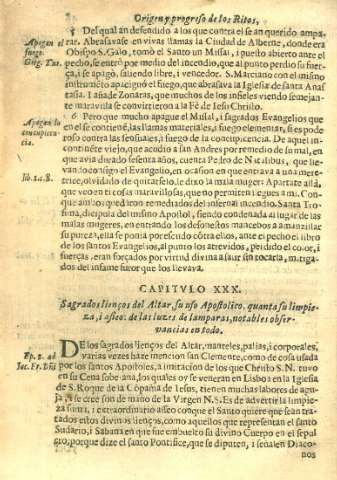 Origen y progreso de los Ritos,
Del qual an defendido a los que contra el se an querido ampa-
rar. Abrasavase en vivas llamas la Ciudad de Alberne, donde era
Obispo S. Galo, tomò el Santo un Missal, i puesto abierto ante el
pecho, se entrò por medio del incendio, que al punto perdio su fuer-
ça, i se apagò, saliendo libre, i vencedor. S. Marciano con el mismo
instrumèto apacigurò el fuego, que abrasava la Iglesia de santa Anas
tasia. I añade Zonaras, que muchos de los infieles viendo semejan-
te maravilla se convirtieron a la Fè de Iesu Christo.
Apagan el
fuego.
Greg. Tur.
6 Pero que mucho apague el Missal, i sagrados Evangelios que
en el se contienē, las llamas materiales, i fuego elementar, si es pode
roso contra las sensuales, i fuego de la concupiscencia. De aquel in-
continēte viejo, que acudio a san Andres por remedio de su mal, en
que avia durado sesenta años, cuenta Pedro de Natalibus, que lle-
vando consigo el Evangelio, en ocasion en que entrava a una mere-
trice, olvidado de quitarselo, le dixo la mala muger: Apartate allà,
que veo en ti cosas maravillosas, que no permiten llegues a mi. Con
que ambos quedaron remediados del infernal incendio. Santa Tro-
fima, dicipula del mismo Apostol, siendo condenada al lugar de las
malas mugeres, en entrando los desonestos mancebos a amanzillar
su pureza, ella se ponia por escudo còtra ellos, ante el pecho el libro
de los santos Evangelios, al punto los atrevidos, perdido el color, i
fuerças, eran forçados por virtud divina a salir sin tocarla, mitiga-
dos del infame furor que los llevava.
Apagan la
concupiscē-
cia.
lib. 1. c. 8.
CAPITVLO XXX.
Sagrados lienços del Altar, su uso Apostolico, quanta su limpie-
za, i aseo: de las luzes de lamparas, notables obser-
vancias en todo.
DE los sagrados lienços del Altar, manteles, palias, i corporales,
varias vezes haze mencion san Clemente, como de cosa usada
por los santos Apostoles, a imitacion de los que Christo S.N. tuvo
en su Cena soberana, los quales oy se veneran en Lisboa en la Iglesia
de S. Roque de la Compañia de Iesus, tienen muchas labores de agu-
ja, i se cree son de mano de la Virgen N.S. Es de advertir la limpie-
za suma, i extraordinario asseo conque el Santo quiere que sean tra-
tados estos divinos lienços, como aquellos que representan el santo
Sudario, i Sabana en que fue embuelto su divino Cuerpo en el sepul
cro; porque dize el santo Pontifice, que se diputen, i señalen Diaco-
nos
Ep. 2. ad
Iac. Fr. Dñi